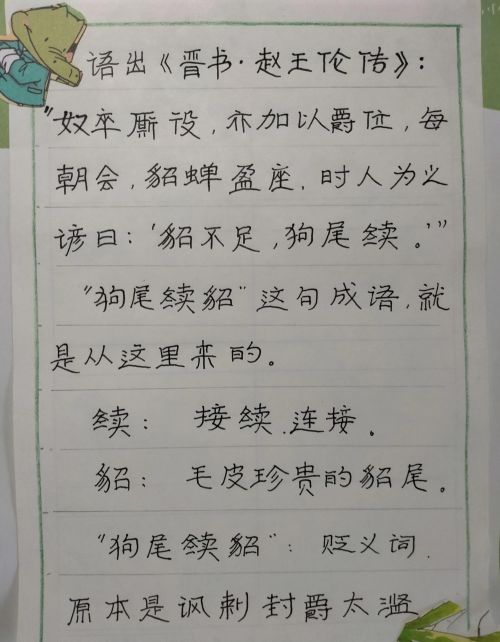 语出《晋书·赵王伦传》：
"奴卒厮役，亦加以爵位，每
朝会，貂蝉盈座．时人为之
谚曰：'貂不足，狗尾续。'"
"狗尾续貂"这句成语，就
是从这里来的。
续： 接续．连接．
貂： 毛皮珍贵的貂尾。
"狗尾续貂"： 贬义词．
原本是讽刺封爵太滥